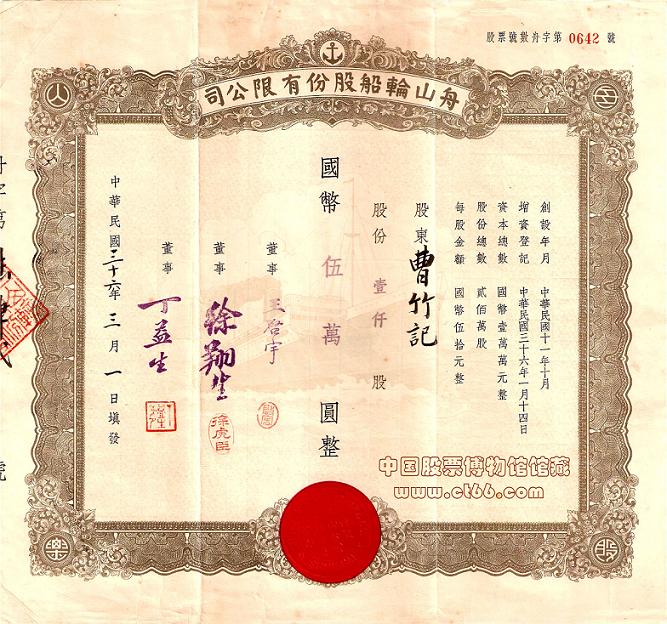 股票號數舟字第 0642 號
舟山輪船股份有限公司
創設年月 中華民國十一年十月
增資登記 中華民國三十六年一月十四日
資本總數 國幣壹萬萬元整
股份總數 貳佰萬股
每股金額 國幣伍拾元整
股東 曹竹記
股份 壹仟 股
國幣 伍萬 圓整
董事 王啓宇
董事 徐翔生
董事 丁益生
中華民國三十六年三月一日填發
號
股
票
中国股票博物馆馆藏
www.ct66.com